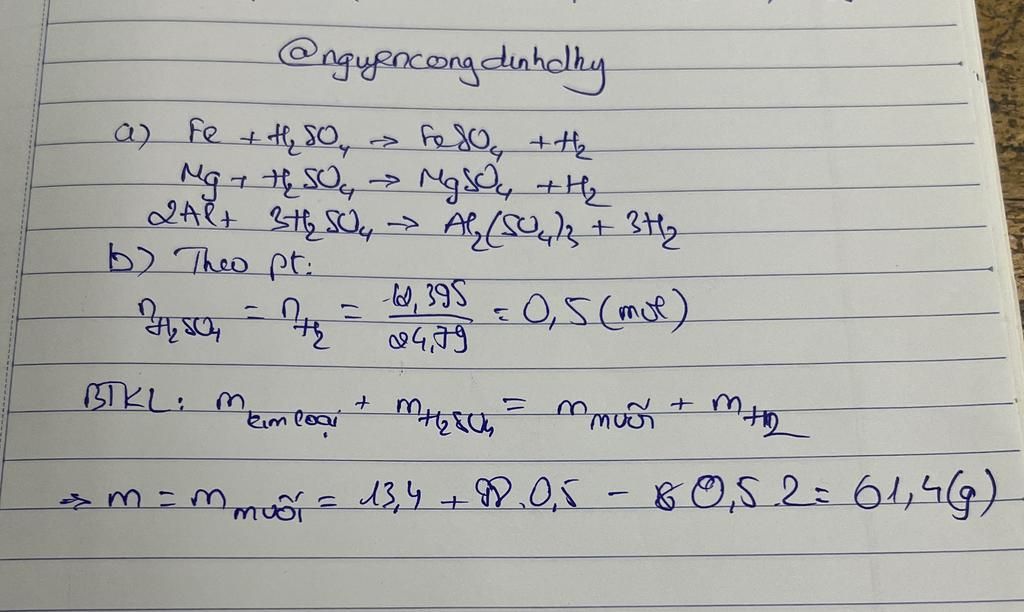 @nguyencongdinhdhy
a) Fe + H₂SO₄ → FeSO₄ + H₂
Mg + H₂SO₄ → MgSO₄ + H₂
2Al + 3H₂SO₄ → Al₂(SO₄)₃ + 3H₂
b) Theo pt:
n_H₂SO₄ = n_H₂ = 12,395 / 24,79 = 0,5 (mol)
BTKL: m kim loại + m H₂SO₄ = m muối + m H₂
⇒ m = m muối = 13,4 + 98.0,5 - 0,5.2 = 61,4 (g)